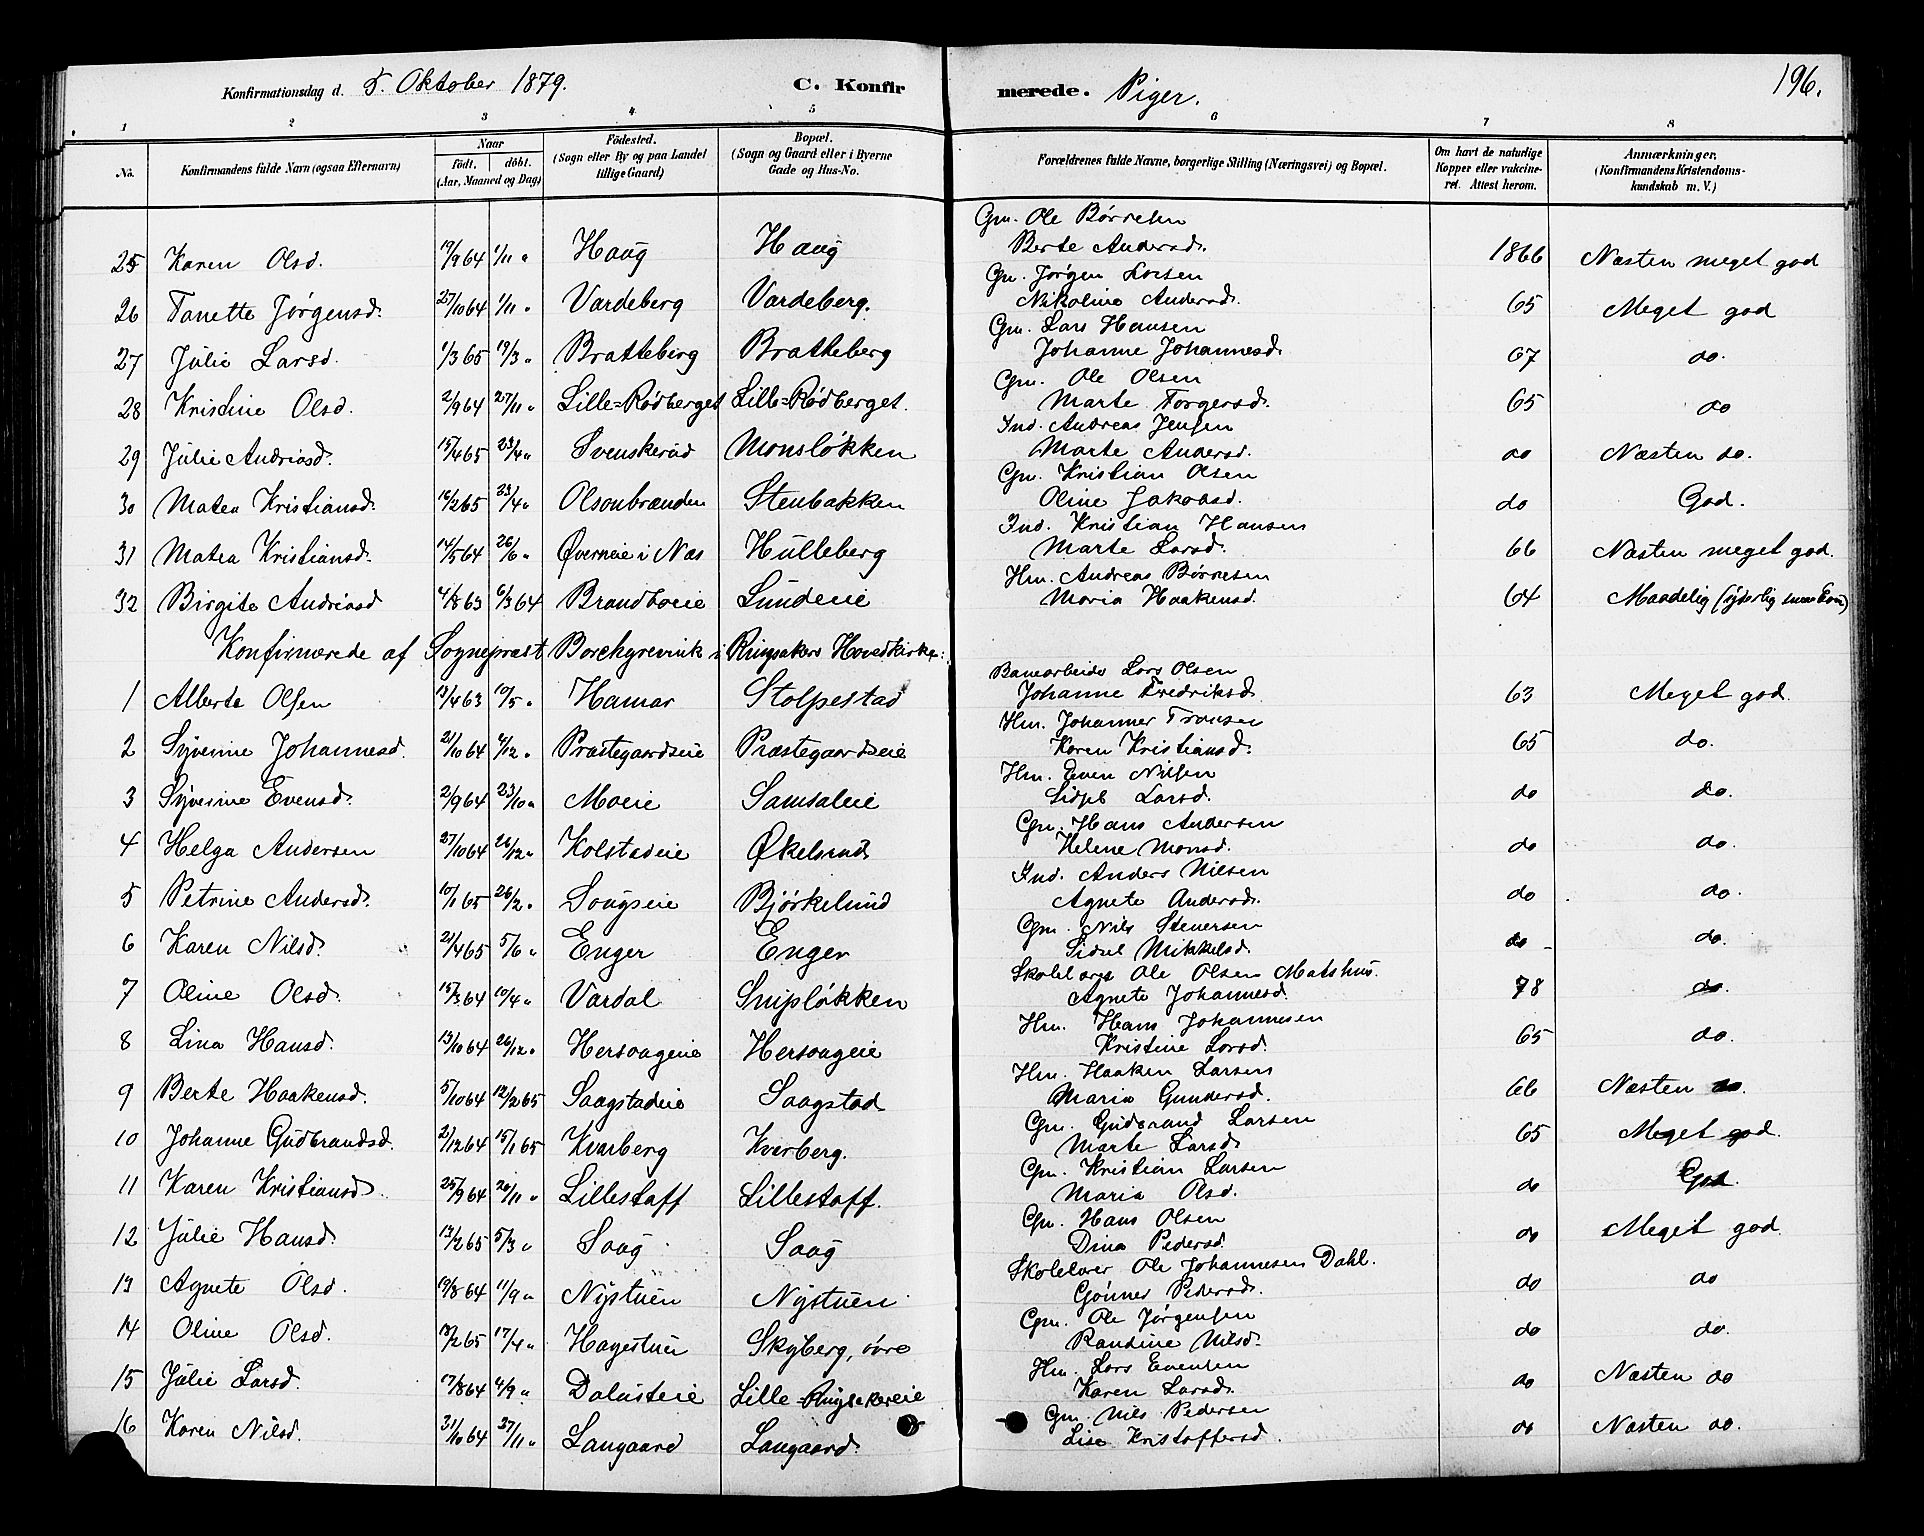 Konfirmationsdag d. 5. Oktober 1879. C. Konfirmerede. Piger. 196.
1 2 3 4 5 6 7 8
No. Konfirmandens fulde Navn (ogsaa Efternavn) Naar födt. döbt. (Aar, Maaned og Dag) Födested. (Sogn eller By og paa Landet tillige Gaard) Bopæl. (Sogn og Gaard eller i Byerne Gade og Hus-No. Forældrenes fulde Navne, borgerlige Stilling (Næringsvei) og Bopæl. Om havt de naturlige Kopper eller vakcineret. Attest herom. Anmærkninger. (Konfirmandens Kristendomskundskab m. V.)
25 Karen Olsd. 19/9 64 1/11 " Haug Haug Gm. Ole Børresen Berte Andersd. 1866 Næsten meget god
26 Tanette Jørgensd. 27/10 64 1/11 " Vardeberg Vardeberg. Gm. Jørgen Larsen Nikoline Andersd. 65 Meget god
27 Julie Larsd. 1/3 65 19/3 " Bratteberg Bratteberg Gm. Lars Hansen Johanne Johannesd. 67 do.
28 Kristine Olsd. 2/9 64 27/11 " Lille=Rødberget Lille=Rødberget. Gm. Ole Olsen Marte Torgersd. 65 do
29 Julie Andreasd. 15/4 65 23/4 " Svenskerud Monsløkken Ind. Andreas Jensen Marte Andersd. do Næsten do.
30 Matea Kristiansd. 16/2 65 23/4 " Olsonbrænden Stenbakken Gm. Kristian Olsen Oline Jakobsd. do God.
31 Matea Kristiansd. 14/5 64 26/6 " Øverneie i Næs Hulleberg Ind. Kristian Hansen Marte Larsd. 66 Næsten meget god.
32 Birgite Andreasd 4/8 63 6/3 64 Brandboeie Lundeie Hm. Andreas Børresen Maria Haakensd. 64 Maadelig
Konfirmerede af Sogneprest Borchgrevink i Ringsakers Hovedkirke:
1 Alberte Olsen 13/4 63 10/5 " Hamar Stolpestad Banearbeider Lars Olsen Johanne Fredriksd. 63 Meget god.
2 Syverine Johannesd. 21/10 64 4/12 " Præstegaardseie Præstegaardseie Hm. Johannes Transen Karen Kristiansd. 65 do.
3 Syverine Evensd. 2/9 64 23/10 " Moeie Samsaleie Hm. Even Nilsen Sidsel Larsd. do do.
4 Helga Andersen 27/10 64 26/12 " Kolstadeie Økelsrud Gm. Hans Andersen Helene Monsd. do do.
5 Petrine Andersd. 10/1 65 26/2 " Sougseie Bjørkelund Ind. Anders Nilsen Agnete Andersd. do do.
6 Karen Nilsd. 21/4 65 5/6 " Enger Enger Gm. Nils Stenersen Sidsel Mikkelsd. do do.
7 Oline Olsd. 15/3 64 10/4 " Vardal Snipløkken Skolelærer Ole Olsen Matshus. Agnete Johannesd. 78 do.
8 Lina Hansd. 13/10 64 26/12 " Hersougeie Hersougeie Hm. Hans Johannesen Kristine Larsd. 65 do.
9 Berte Haakensd. 5/10 64 12/2 65 Saagstadeie Saagstad Hm. Haaken Larsen Maria Gundersd. 66 Næsten do.
10 Johanne Gudbrandsd. 2/12 64 15/1 65 Kvarberg Kverberg. Gm. Gudbrand Larsen Marte Larsd. 65 Meget god.
11 Karen Kristiansd. 25/9 64 20/11 " Lillestaff Lillestaff. Gm. Kristian Larsen Maria Olsd. do God.
12 Julie Hansd. 13/2 65 5/3 " Saag Saag Gm. Hans Olsen Dina Pedersd. do Meget god.
13 Agnete Olsd. 19/8 64 11/9 " Nystuen Nystuen Skolelærer Ole Johannesen Dahl. Gønner Pedersd. do do
14 Oline Olsd. 18/2 65 17/4 " Hagestuen Skyberg, øvre Gm. Ole Jørgensen Randine Nilsd. do do.
15 Julie Larsd. 17/8 64 4/9 " Dalusteie Lille-Ringsakereie Hm. Lars Evensen Karen Larsd. do Næsten do
16 Karen Nilsd. 31/10 64 27/11 " Langaard Langaard. Gm. Nils Pedersen Lise Kristoffersd. do Næsten do.